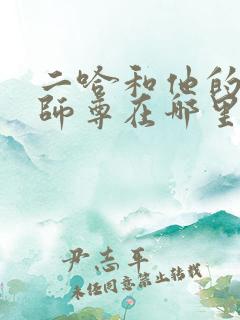 二哈和他的
師尊在哪里
尹志平
未经同意禁止转载